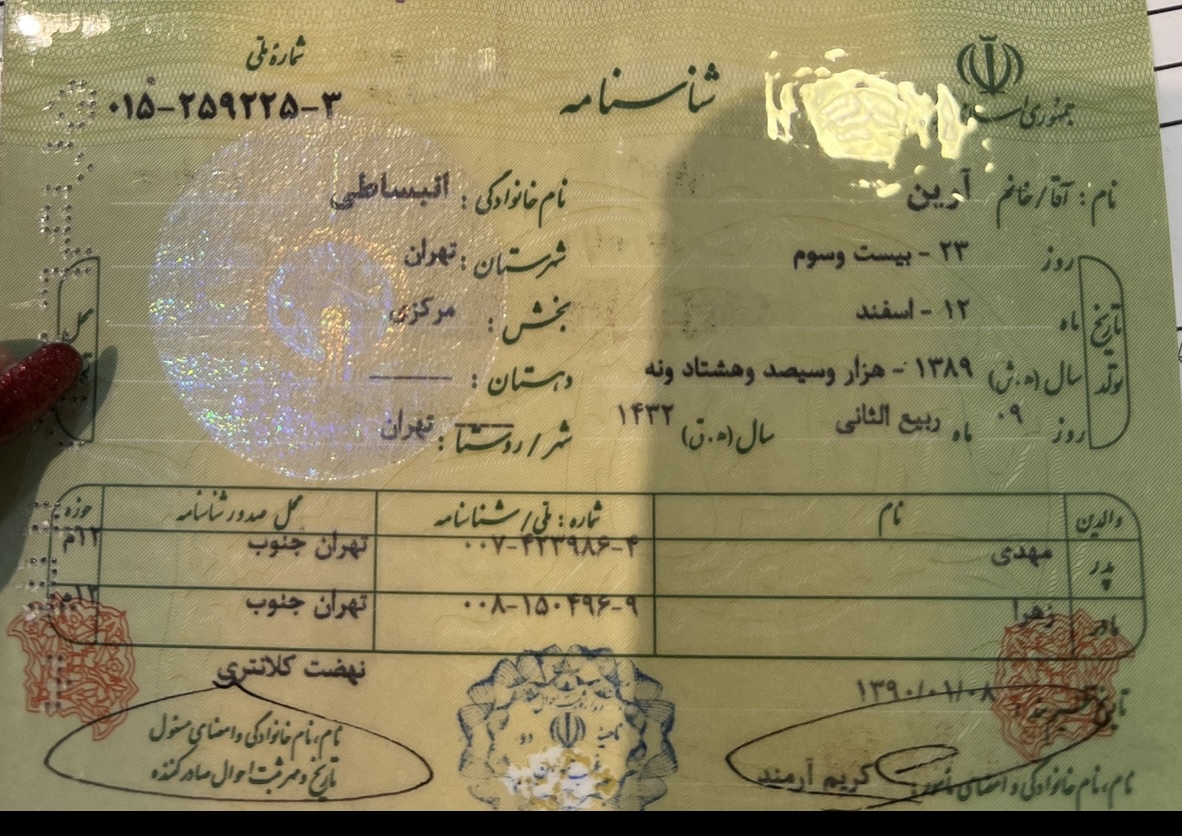 جمهوری اسلامی
شناسنامه
شماره ملی
۰۱۵-۲۵۹۲۲۵-۳
نام: آقا/خانم آرین
نام خانوادگی: انبساطی
تاریخ تولد
روز ۲۳ - بیست وسوم
شهرستان: تهران
ماه ۱۲ - اسفند
بخش: مرکزی
سال (ه.ش) ۱۳۸۹ - هزار وسیصد وهشتاد ونه
دهستان:
روز ۰۹ ماه ربیع الثانی سال (ه.ق) ۱۴۳۲
شهر/روستا: تهران
محل
والدین نام شماره: ملی/شناسنامه محل صدور شناسنامه حوزه
پدر مهدی ۰۰۷-۴۲۳۹۸۶-۴ تهران جنوب ۱۲م
مادر زهرا ۰۰۸-۱۵۰۴۹۶-۹ تهران جنوب ۱۲م
تاریخ ۱۳۹۰/۰۱/۰۸
نهضت کلانتری
نام، نام خانوادگی و امضای مأمور: کریم آرمند
نام، نام خانوادگی و امضای مسئول
تاریخ و مهر ثبت احوال صادرکننده
ناحیه دو